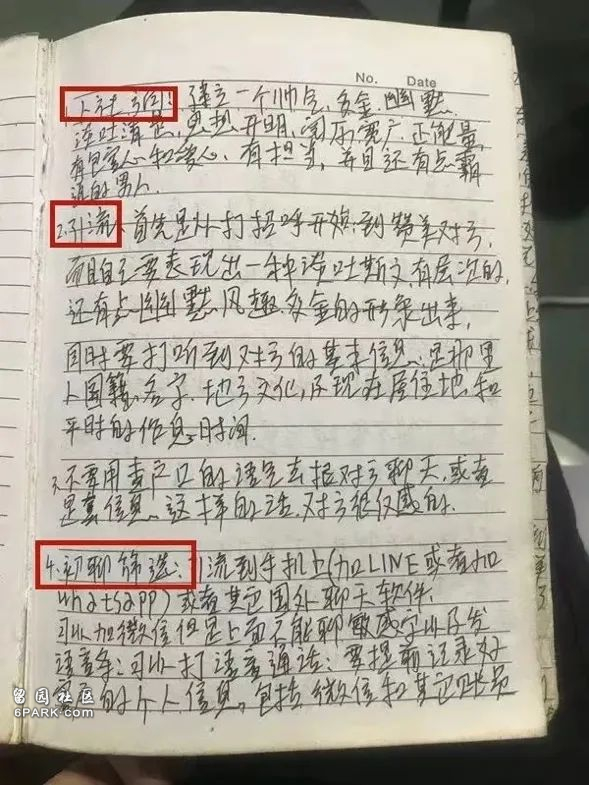 No. Date
1.人设方向: 建立一个帅气,多金,幽默
谈吐清楚,思想开明,阅历宽广,正能量
有包容心和爱心,有担当,并且还有点霸
道的男人.
2.引流: 首先是从打招呼开始:到赞美对方,
而且自己要表现出一种谈吐斯文有层次的,
还有点幽默风趣.多金的形象出来,
同时要打听到对方的基本信息:是那里
人国籍.名字.地方文化,及现在居住地.和
平时的作息时间.
3.不要用查户口的语气去跟对方聊天,或者
是信息.这样的话.对方很反感的.
4.初聊筛选: 引流到手机上(加LINE或者加
whatsapp)或者其它国外聊天软件.
可以加微信但是上面不能聊敏感字以及发
语音等:可以打语音通话:要提前记录好
的个人信息,包括微信和其它
留园社区
6PARK.com